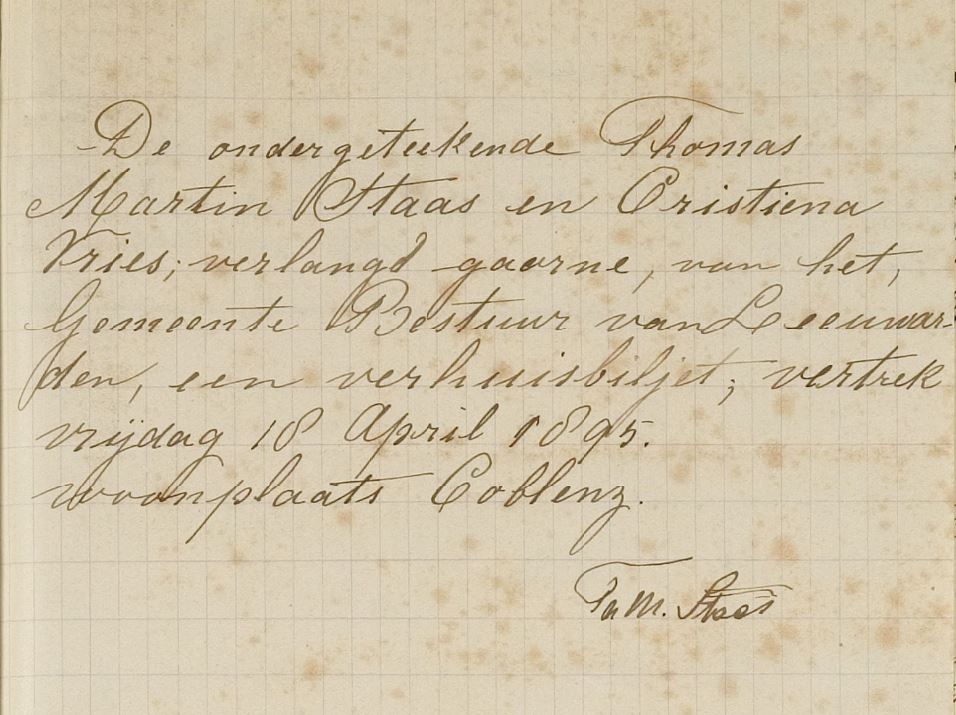 De ondergeteekende Thomas
Martin Staas en Cristiena
Vries; verlangd gaarne, van het,
Gemeente Bestuur van Leeuwar-
den, een verhuisbiljet; vertrek
vrijdag 18 April 1895.
woonplaats Coblenz.
M. Staas